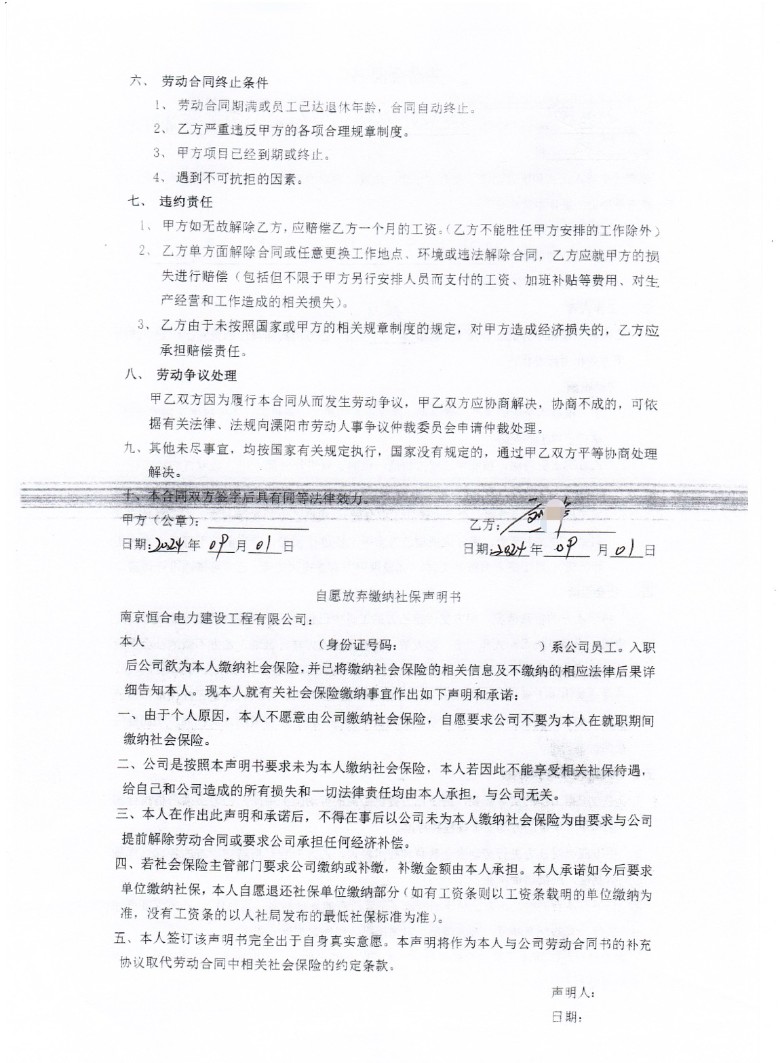 六、 劳动合同终止条件
1、 劳动合同期满或员工已达退休年龄，合同自动终止。
2、 乙方严重违反甲方的各项合理规章制度。
3、 甲方项目已经到期或终止。
4、 遇到不可抗拒的因素。
七、 违约责任
1、 甲方如无故解除乙方，应赔偿乙方一个月的工资。（乙方不能胜任甲方安排的工作除外）
2、 乙方单方面解除合同或任意更换工作地点、环境或违法解除合同，乙方应就甲方的损
失进行赔偿（包括但不限于甲方另行安排人员而支付的工资、加班补贴等费用、对生
产经营和工作造成的相关损失）。
3、 乙方由于未按照国家或甲方的相关规章制度的规定，对甲方造成经济损失的，乙方应
承担赔偿责任。
八、 劳动争议处理
甲乙双方因为履行本合同从而发生劳动争议，甲乙双方应协商解决，协商不成的，可依
据有关法律、法规向溧阳市劳动人事争议仲裁委员会申请仲裁处理。
九、其他未尽事宜，均按国家有关规定执行，国家没有规定的，通过甲乙双方平等协商处理
解决。
十、本合同双方签字后具有同等法律效力。
甲方（公章）： 乙方：
日期：2024 年 09 月 01 日 日期：2024 年 09 月 01 日
自愿放弃缴纳社保声明书
南京恒合电力建设工程有限公司：
本人 （身份证号码： ）系公司员工。入职
后公司欲为本人缴纳社会保险，并已将缴纳社会保险的相关信息及不缴纳的相应法律后果详
细告知本人。现本人就有关社会保险缴纳事宜作出如下声明和承诺：
一、由于个人原因，本人不愿意由公司缴纳社会保险，自愿要求公司不要为本人在就职期间
缴纳社会保险。
二、公司是按照本声明书要求未为本人缴纳社会保险，本人若因此不能享受相关社保待遇，
给自己和公司造成的所有损失和一切法律责任均由本人承担，与公司无关。
三、本人在作出此声明和承诺后，不得在事后以公司未为本人缴纳社会保险为由要求与公司
提前解除劳动合同或要求公司承担任何经济补偿。
四、若社会保险主管部门要求公司缴纳或补缴，补缴金额由本人承担。本人承诺如今后要求
单位缴纳社保，本人自愿退还社保单位缴纳部分（如有工资条则以工资条载明的单位缴纳为
准，没有工资条的以人社局发布的最低社保标准为准）。
五、本人签订该声明书完全出于自身真实意愿。本声明将作为本人与公司劳动合同书的补充
协议取代劳动合同中相关社会保险的约定条款。
声明人：
日期：